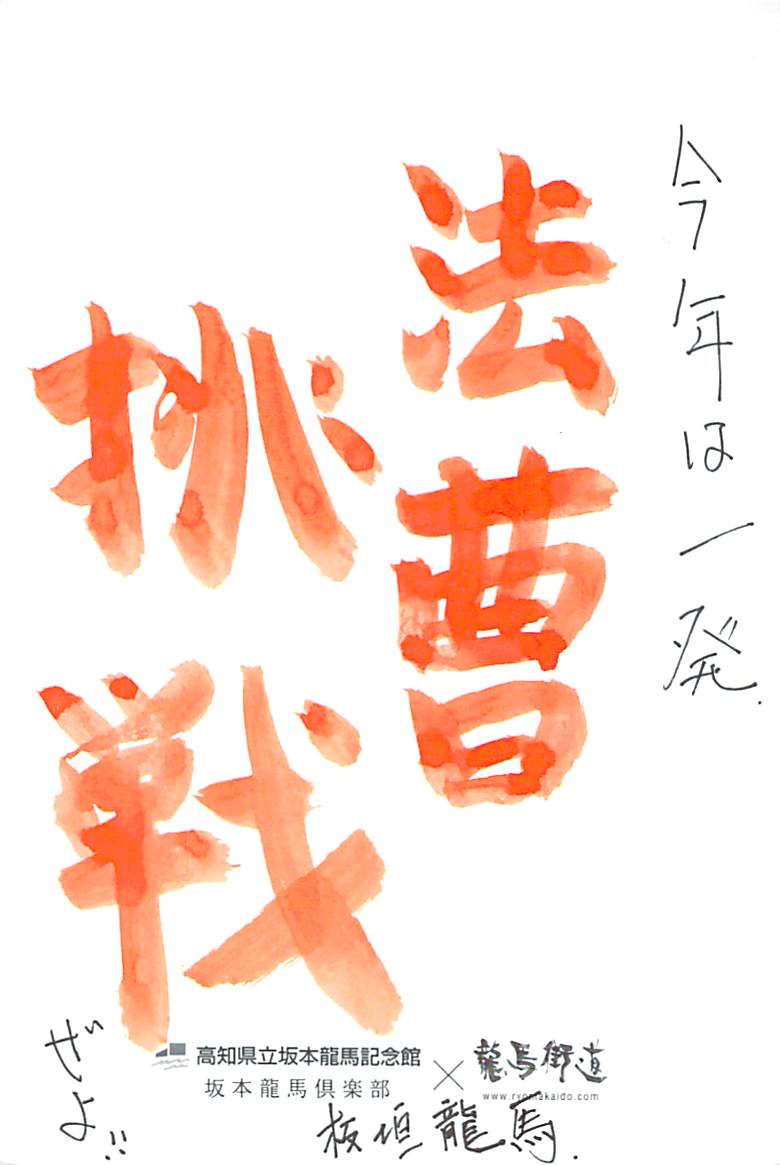 今年は一発.
法曹
挑戦
ぜよ!!
高知県立坂本龍馬記念館
坂本龍馬倶楽部
×
龍馬街道
www.ryomakaido.com
板垣龍馬.